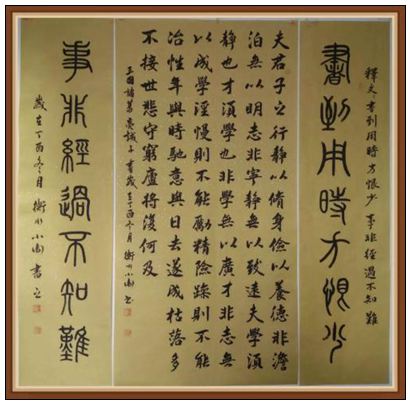 釋文書到用時方恨少事非經過不知難
書到用時方恨少
夫君子之行靜以脩身儉以養德非澹
泊無以明志非寧靜無以致遠夫學須
靜也才須學也非學無以廣才非志無
以成學淫慢則不能勵精險躁則不能
冶性年與時馳意與日去遂成枯落多
不接世悲守窮廬將復何及
三國諸葛亮誡子書歲在丁酉冬月衡水小
事非經過不知難
歲在丁酉冬月衡水小